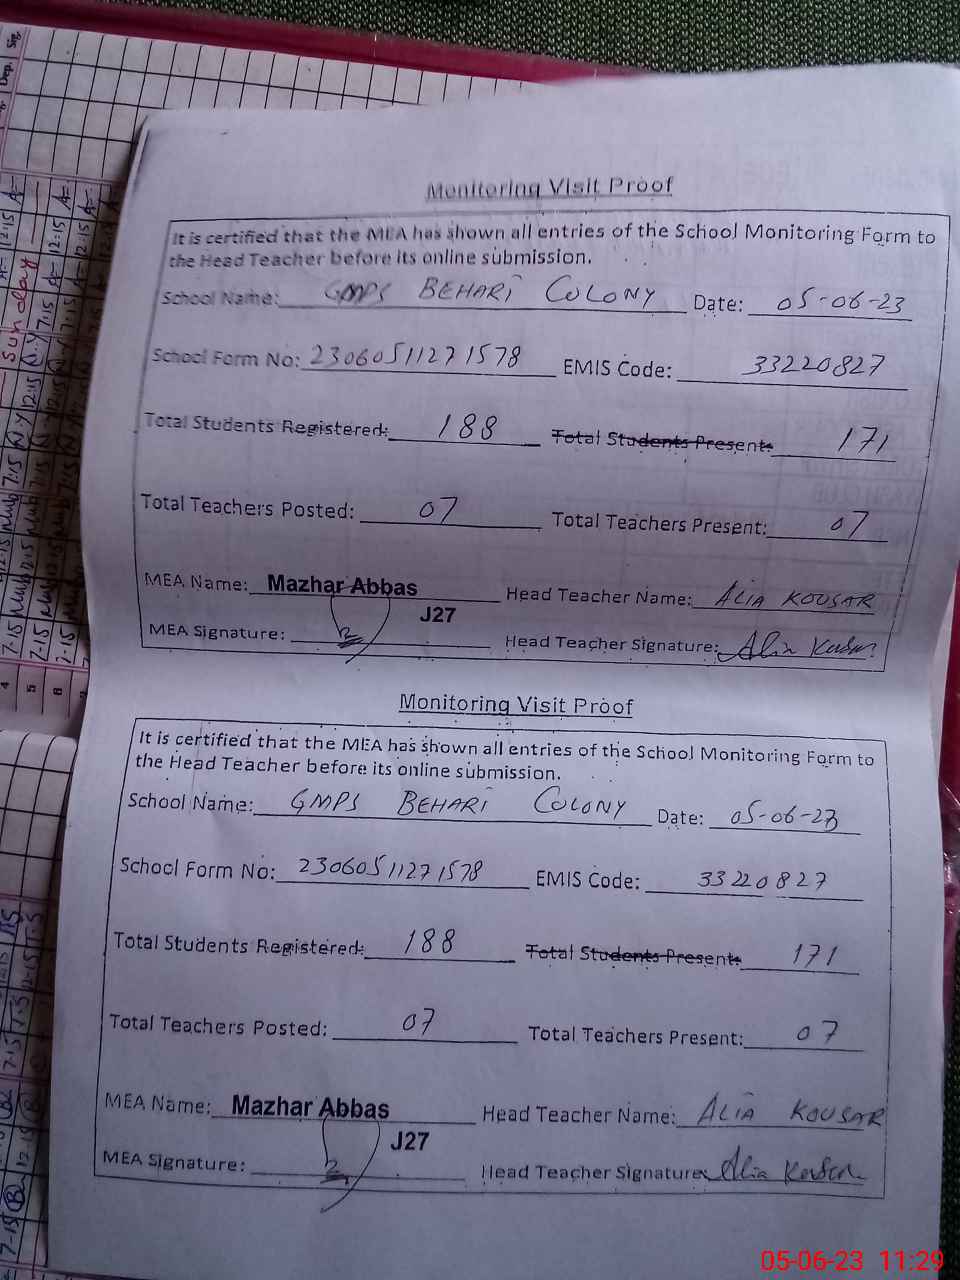 Monitoring Visit Proof
It is certified that the MEA has shown all entries of the School Monitoring Form to
the Head Teacher before its online submission.
School Name: GMPS BEHARI COLONY Date: 05-06-23
School Form No: 23060511271578 EMIS Code: 33220827
Total Students Registered: 188 Total Students Present: 171
Total Teachers Posted: 07 Total Teachers Present: 07
MEA Name: Mazhar Abbas Head Teacher Name: ALIA KOUSAR
J27
MEA Signature: Head Teacher Signature: Alia Kousar
Monitoring Visit Proof
It is certified that the MEA has shown all entries of the School Monitoring Form to
the Head Teacher before its online submission.
School Name: GMPS BEHARI COLONY Date: 05-06-23
School Form No: 23060511271578 EMIS Code: 33220827
Total Students Registered: 188 Total Students Present: 171
Total Teachers Posted: 07 Total Teachers Present: 07
MEA Name: Mazhar Abbas Head Teacher Name: ALIA KOUSAR
J27
MEA Signature: Head Teacher Signature: Alia Kousar
Sunday
05-06-23 11:29